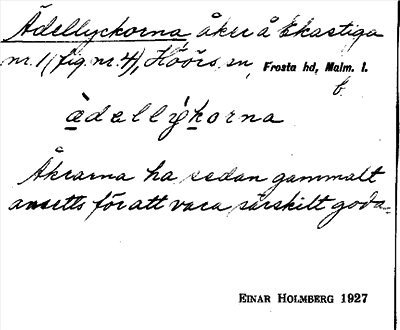 Ädellyckorna åker å Ekastiga
nr. 1 (fig. nr. 4), Höörs sn, Frosta hd, Malm. l.
f.
àdellýkorna
Åkrarna ha sedan gammalt
ansetts för att vara särskilt goda.
EINAR HOLMBERG 1927